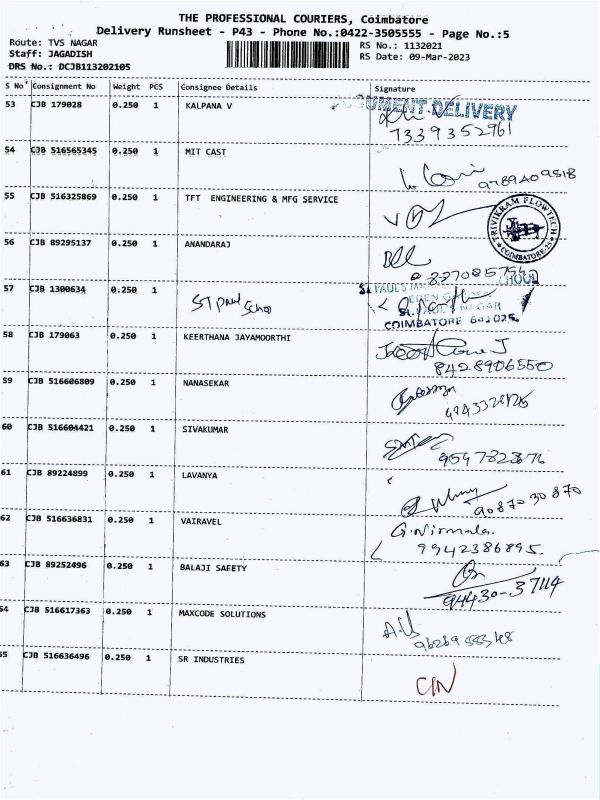 THE PROFESSIONAL COURIERS, Coimbatore
Delivery Runsheet - P43 - Phone No.:0422-3505555 - Page No.:5
Route: TVS NAGAR
Staff: JAGADISH
DRS No.: DCJB113202105
RS No.: 1132021
RS Date: 09-Mar-2023
S No Consignment No Weight PCS Consignee Details Signature
53 CJB 179028 0.250 1 KALPANA V
DOCUMENT DELIVERY
7339352961
54 CJB 516565345 0.250 1 MIT CAST
9789409818
55 CJB 516325869 0.250 1 TFT ENGINEERING & MFG SERVICE
TRIVIKRAM FLOWTECH
COIMBATORE-25
56 CJB 89295137 0.250 1 ANANDARAJ
57 CJB 1300634 0.250 1 ST Paul School
ST. PAUL'S NAGAR
COIMBATORE 641025
58 CJB 179063 0.250 1 KEERTHANA JAYAMOORTHI
8428906550
59 CJB 516606809 0.250 1 NANASEKAR
60 CJB 516604421 0.250 1 SIVAKUMAR
61 CJB 89224899 0.250 1 LAVANYA
90870 30870
62 CJB 516636831 0.250 1 VAIRAVEL
G. Nirmala.
9942386895.
63 CJB 89252496 0.250 1 BALAJI SAFETY
94430-37114
54 CJB 516617363 0.250 1 MAXCODE SOLUTIONS
55 CJB 516636496 0.250 1 SR INDUSTRIES